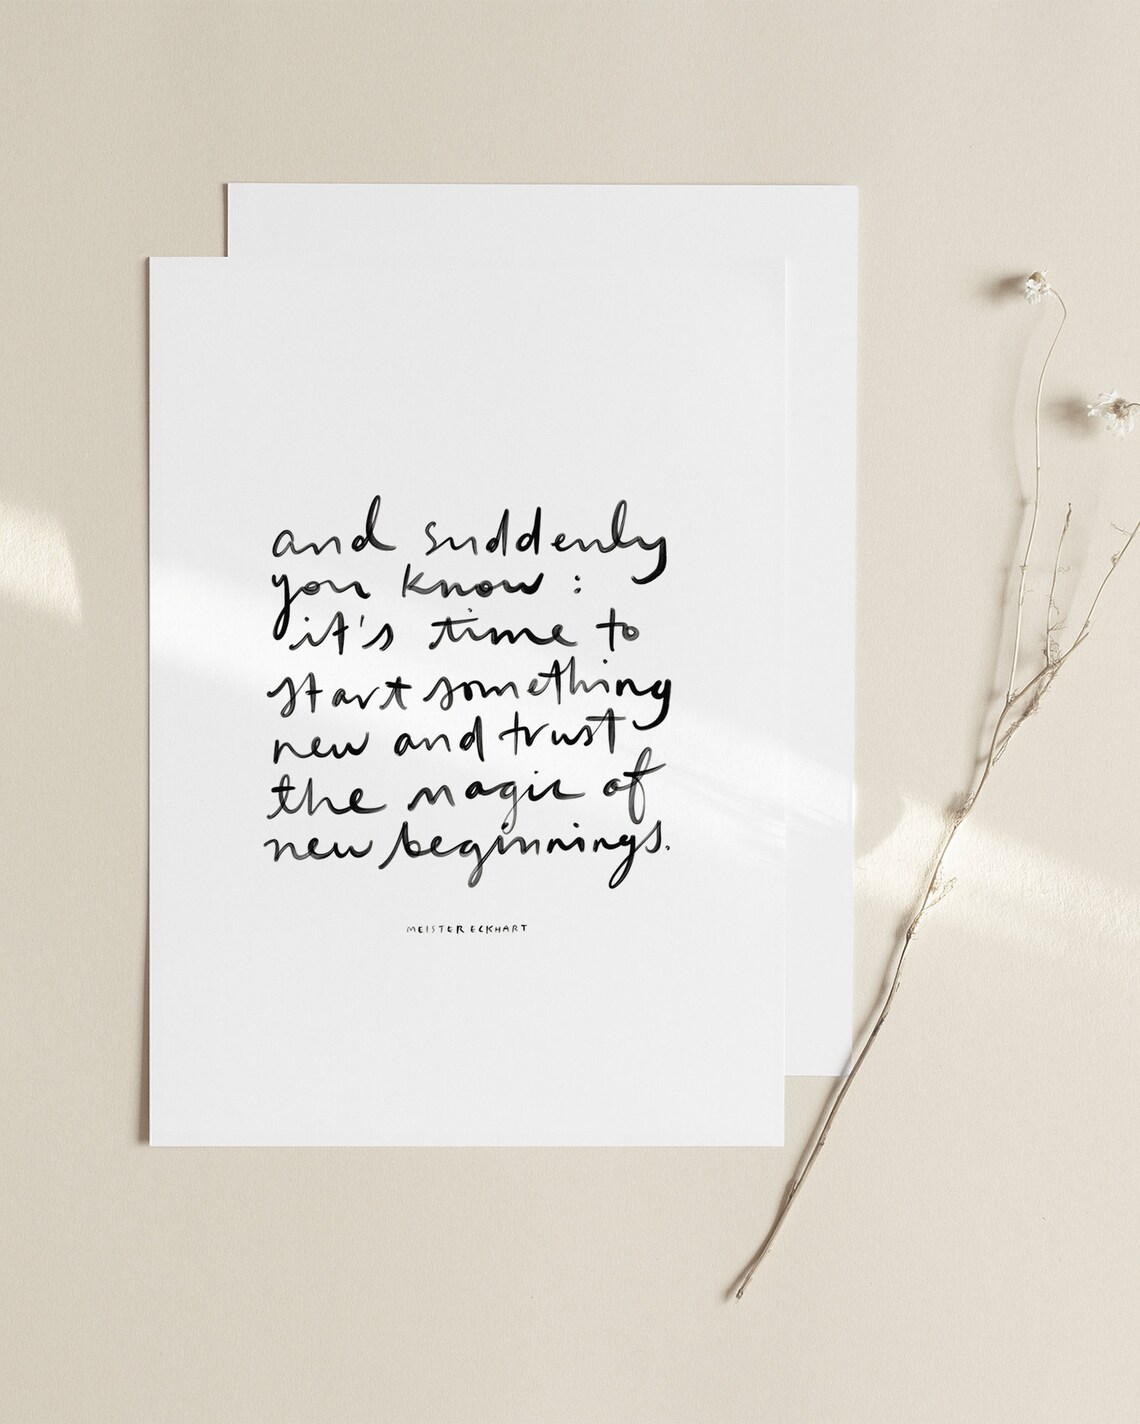 and suddenly
you know :
it's time to
start something
new and trust
the magic of
new beginnings.
MEISTER ECKHART